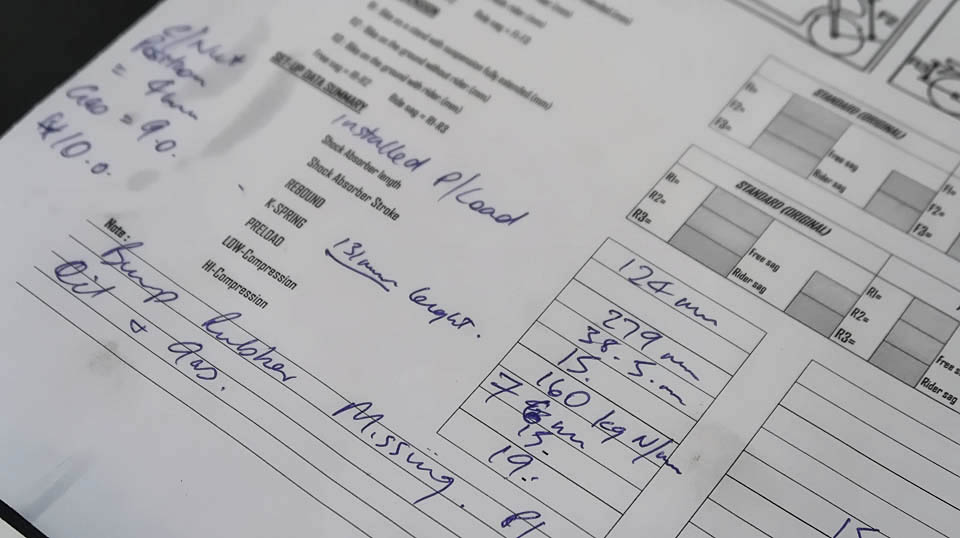 Position
= 4mm
Gas = 9.0.
10.0.
R2 : Bike on the ground without rider (mm)
R3 : Bike on the ground with rider (mm)
Free sag = R1-R2 Rider sag = R1-R3
SET-UP DATA SUMMARY
Installed P/Load
Shock Absorber length
Shock Absorber Stroke
REBOUND
K-SPRING
PRELOAD
LOW-Compression
HI-Compression
131mm lenght.
124 mm
279 mm
38.5.m
15.
160 kg N/mm
7 mm
15.
19.
Note :
Bump Rubber Missing.
Oil + Gas.
STANDARD (ORIGINAL)
F1=
F2=
F3=
Free sag
Rider sag
F1=
F2=
F3=
STANDARD (ORIGINAL)
R1=
R2=
R3=
Free sag
Rider sag
R1=
R2=
R3=
Free s
Rider sag